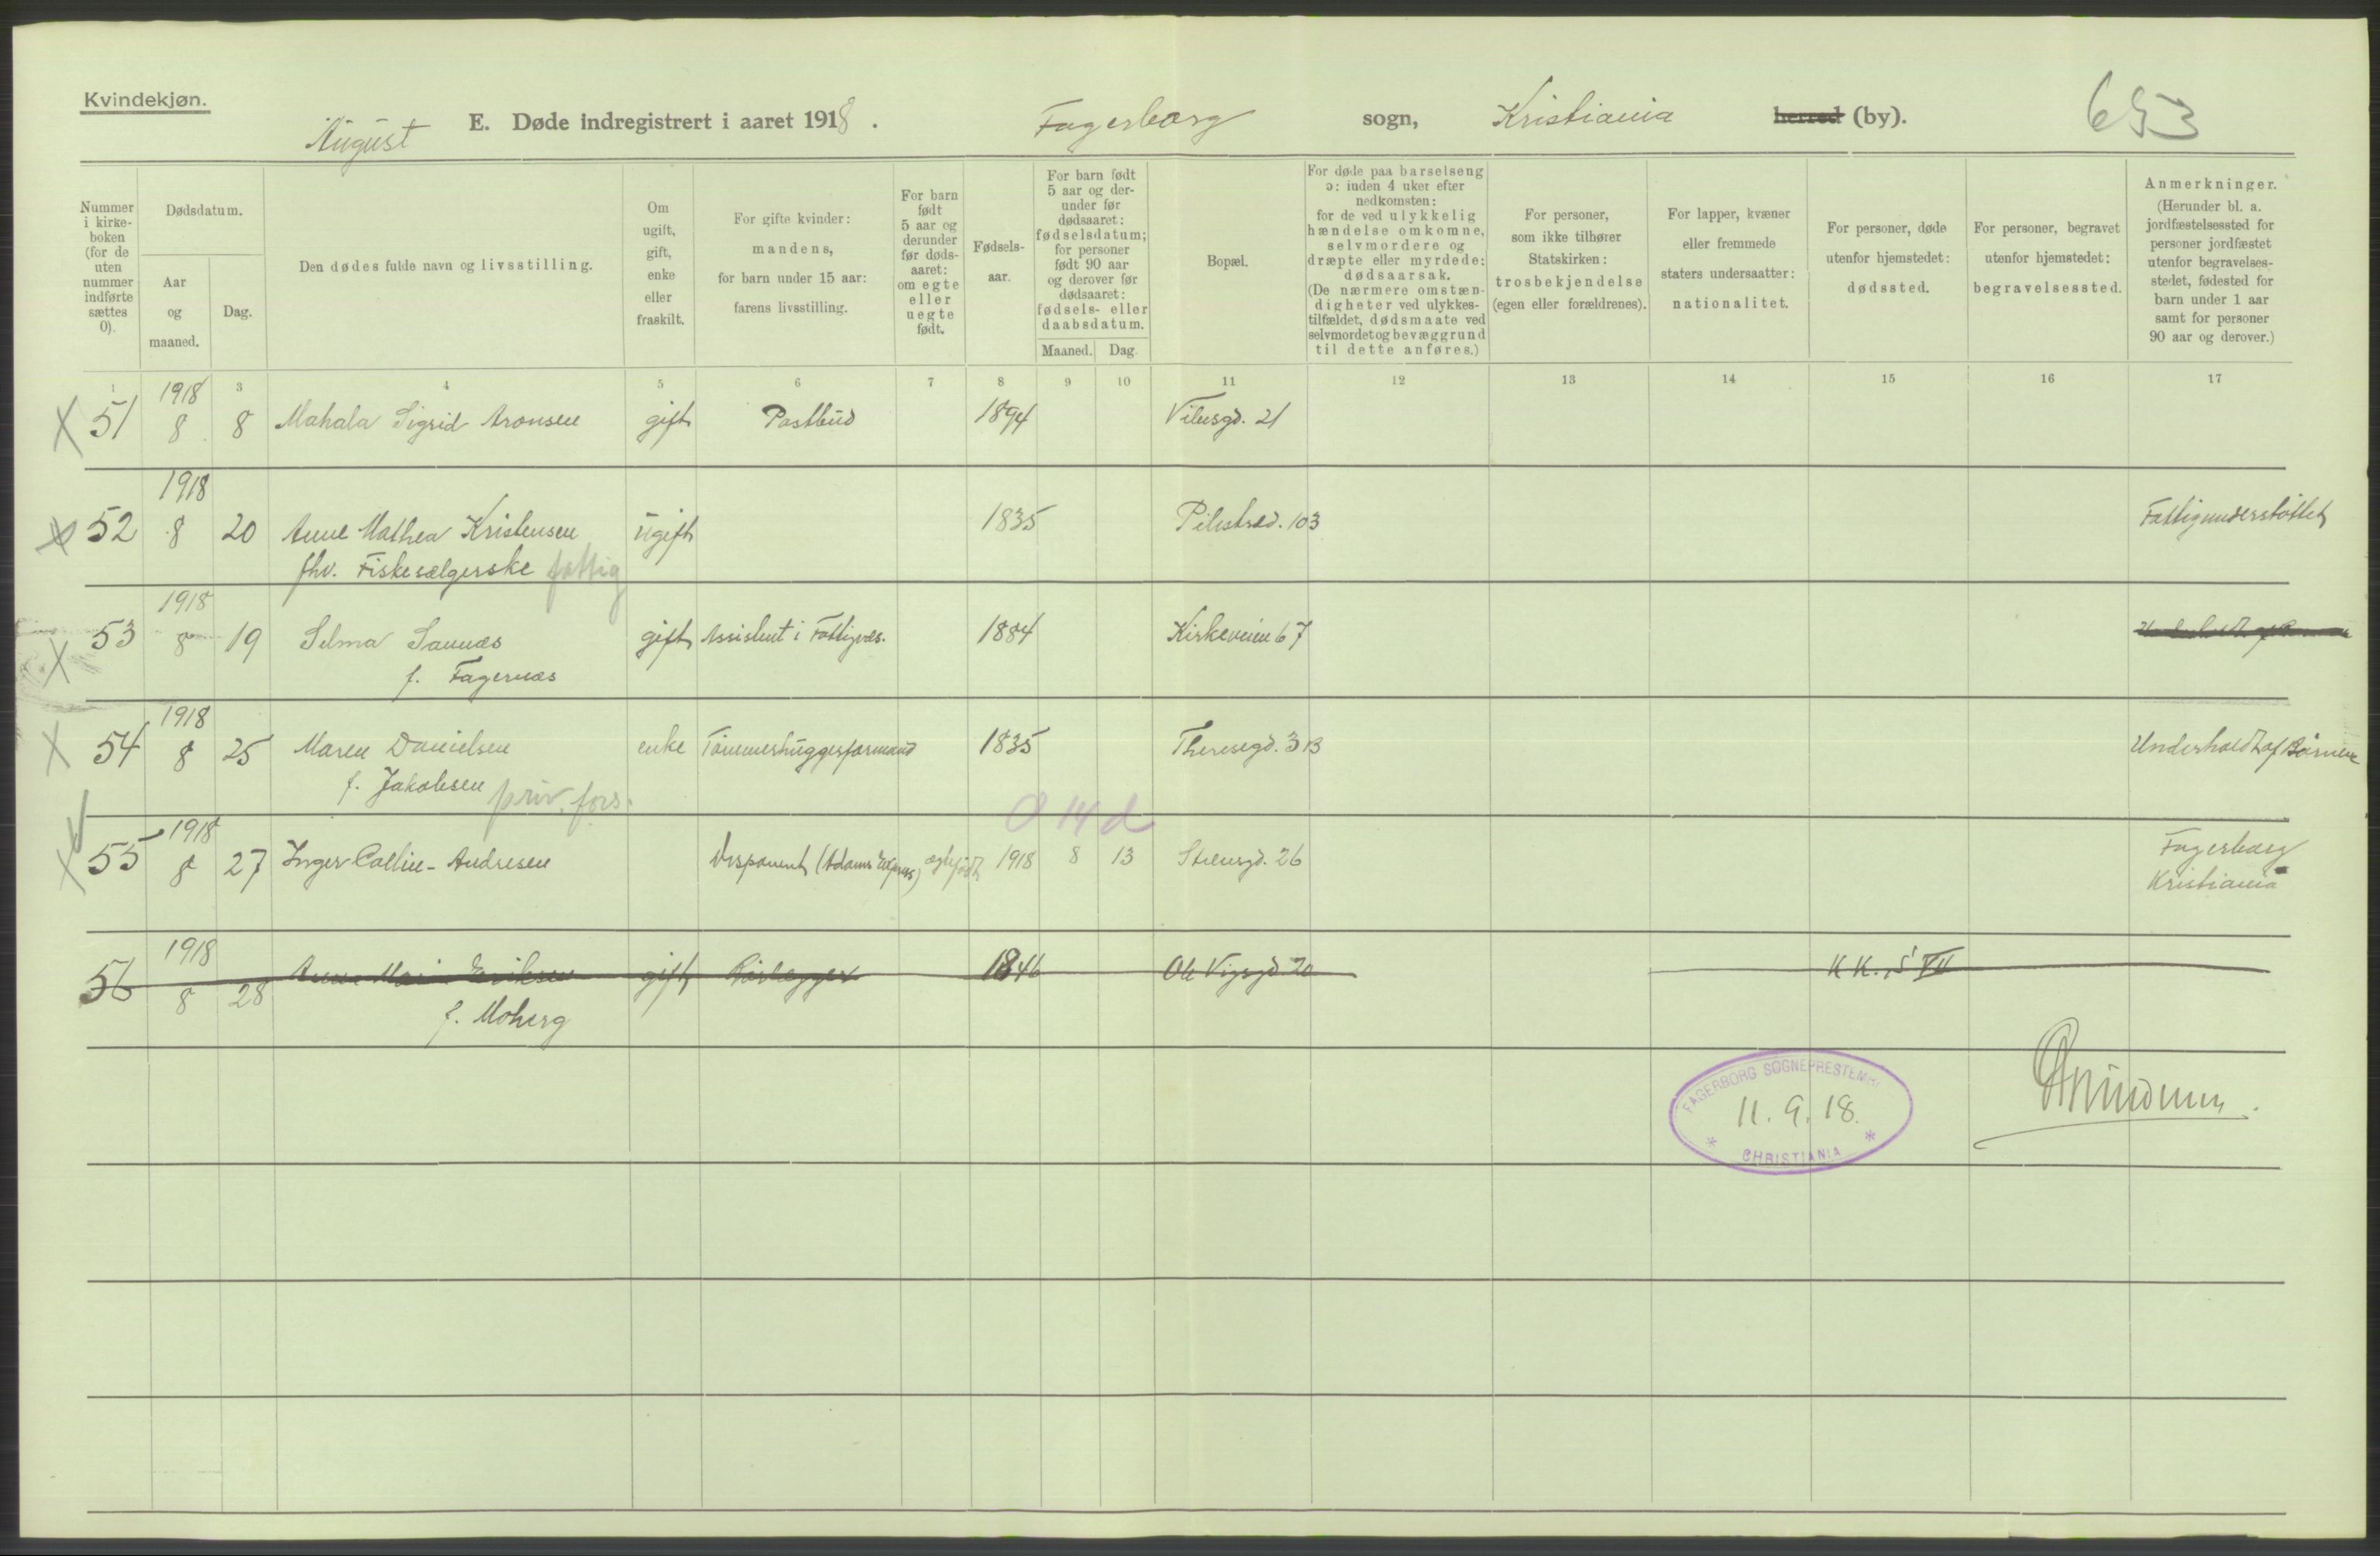 Kvindekjøn.
August E. Døde indregistrert i aaret 1918. Fagerborg sogn, Kristiania herred (by). 653
Nummer i kirke- boken (for de uten nummer indførte sættes 0).
Dødsdatum.
Aar og maaned.
Dag.
Den dødes fulde navn og livsstilling.
Om ugift, gift, enke eller fraskilt.
For gifte kvinder: mandens, for barn under 15 aar: farens livsstilling.
For barn født 5 aar og derunder før døds- aaret: om egte eller uegte født.
Fødsels- aar.
For barn født 5 aar og der- under før dødsaaret: fødselsdatum; for personer født 90 aar og derover før dødsaaret: fødsels- eller daabsdatum.
Maaned. Dag.
Bopæl.
For døde paa barselseng ɔ: inden 4 uker efter nedkomsten: for de ved ulykkelig hændelse omkomne, selvmordere og dræpte eller myrdede: dødsaarsak. (De nærmere omstæn- digheter ved ulykkes- tilfældet, dødsmaate ved selvmordet og bevæggrund til dette anføres.)
For personer, som ikke tilhører Statskirken: trosbekjendelse (egen eller forældrenes).
For lapper, kvæner eller fremmede staters undersaatter: nationalitet.
For personer, døde utenfor hjemstedet: dødssted.
For personer, begravet utenfor hjemstedet: begravelsessted.
Anmerkninger. (Herunder bl. a. jordfæstelsessted for personer jordfæstet utenfor begravelses- stedet, fødested for barn under 1 aar samt for personer 90 aar og derover.)
1 3 4 5 6 7 8 9 10 11 12 13 14 15 16 17
X 51 1918 8 8 Mahala Sigrid Aronsen gift Postbud 1894 Vibesgd. 21
X 52 1918 8 20 Anne Mathea Kristensen ugift 1835 Pilestræd. 103 Fattigunderstøttet
fhv. Fiskesælgerske fattig
X 53 1918 8 19 Selma Sannæs gift Assistent i Fattigvæs. 1884 Kirkeveien 67
f. Fagernæs
X 54 1918 8 25 Maren Danielsen enke Tømmerhuggerformand 1835 Theresegd. 3B Underholdt af Børnene
f. Jakobsen priv. fors.
0 14 d
X 55 1918 8 27 Inger Collin-Andresen Disponent (Adams Express) ægtefødt 1918 8 13 Stensgd. 26 Fagerborg
Kristiania
56 1918 8 28 Anne Marie Eriksen gift Rørlægger 1846 Ole Vigsgd 20 K K., S VII
f. Moberg
FAGERBORG SOGNEPRESTEMB.
11. 9. 18.
* CHRISTIANIA *